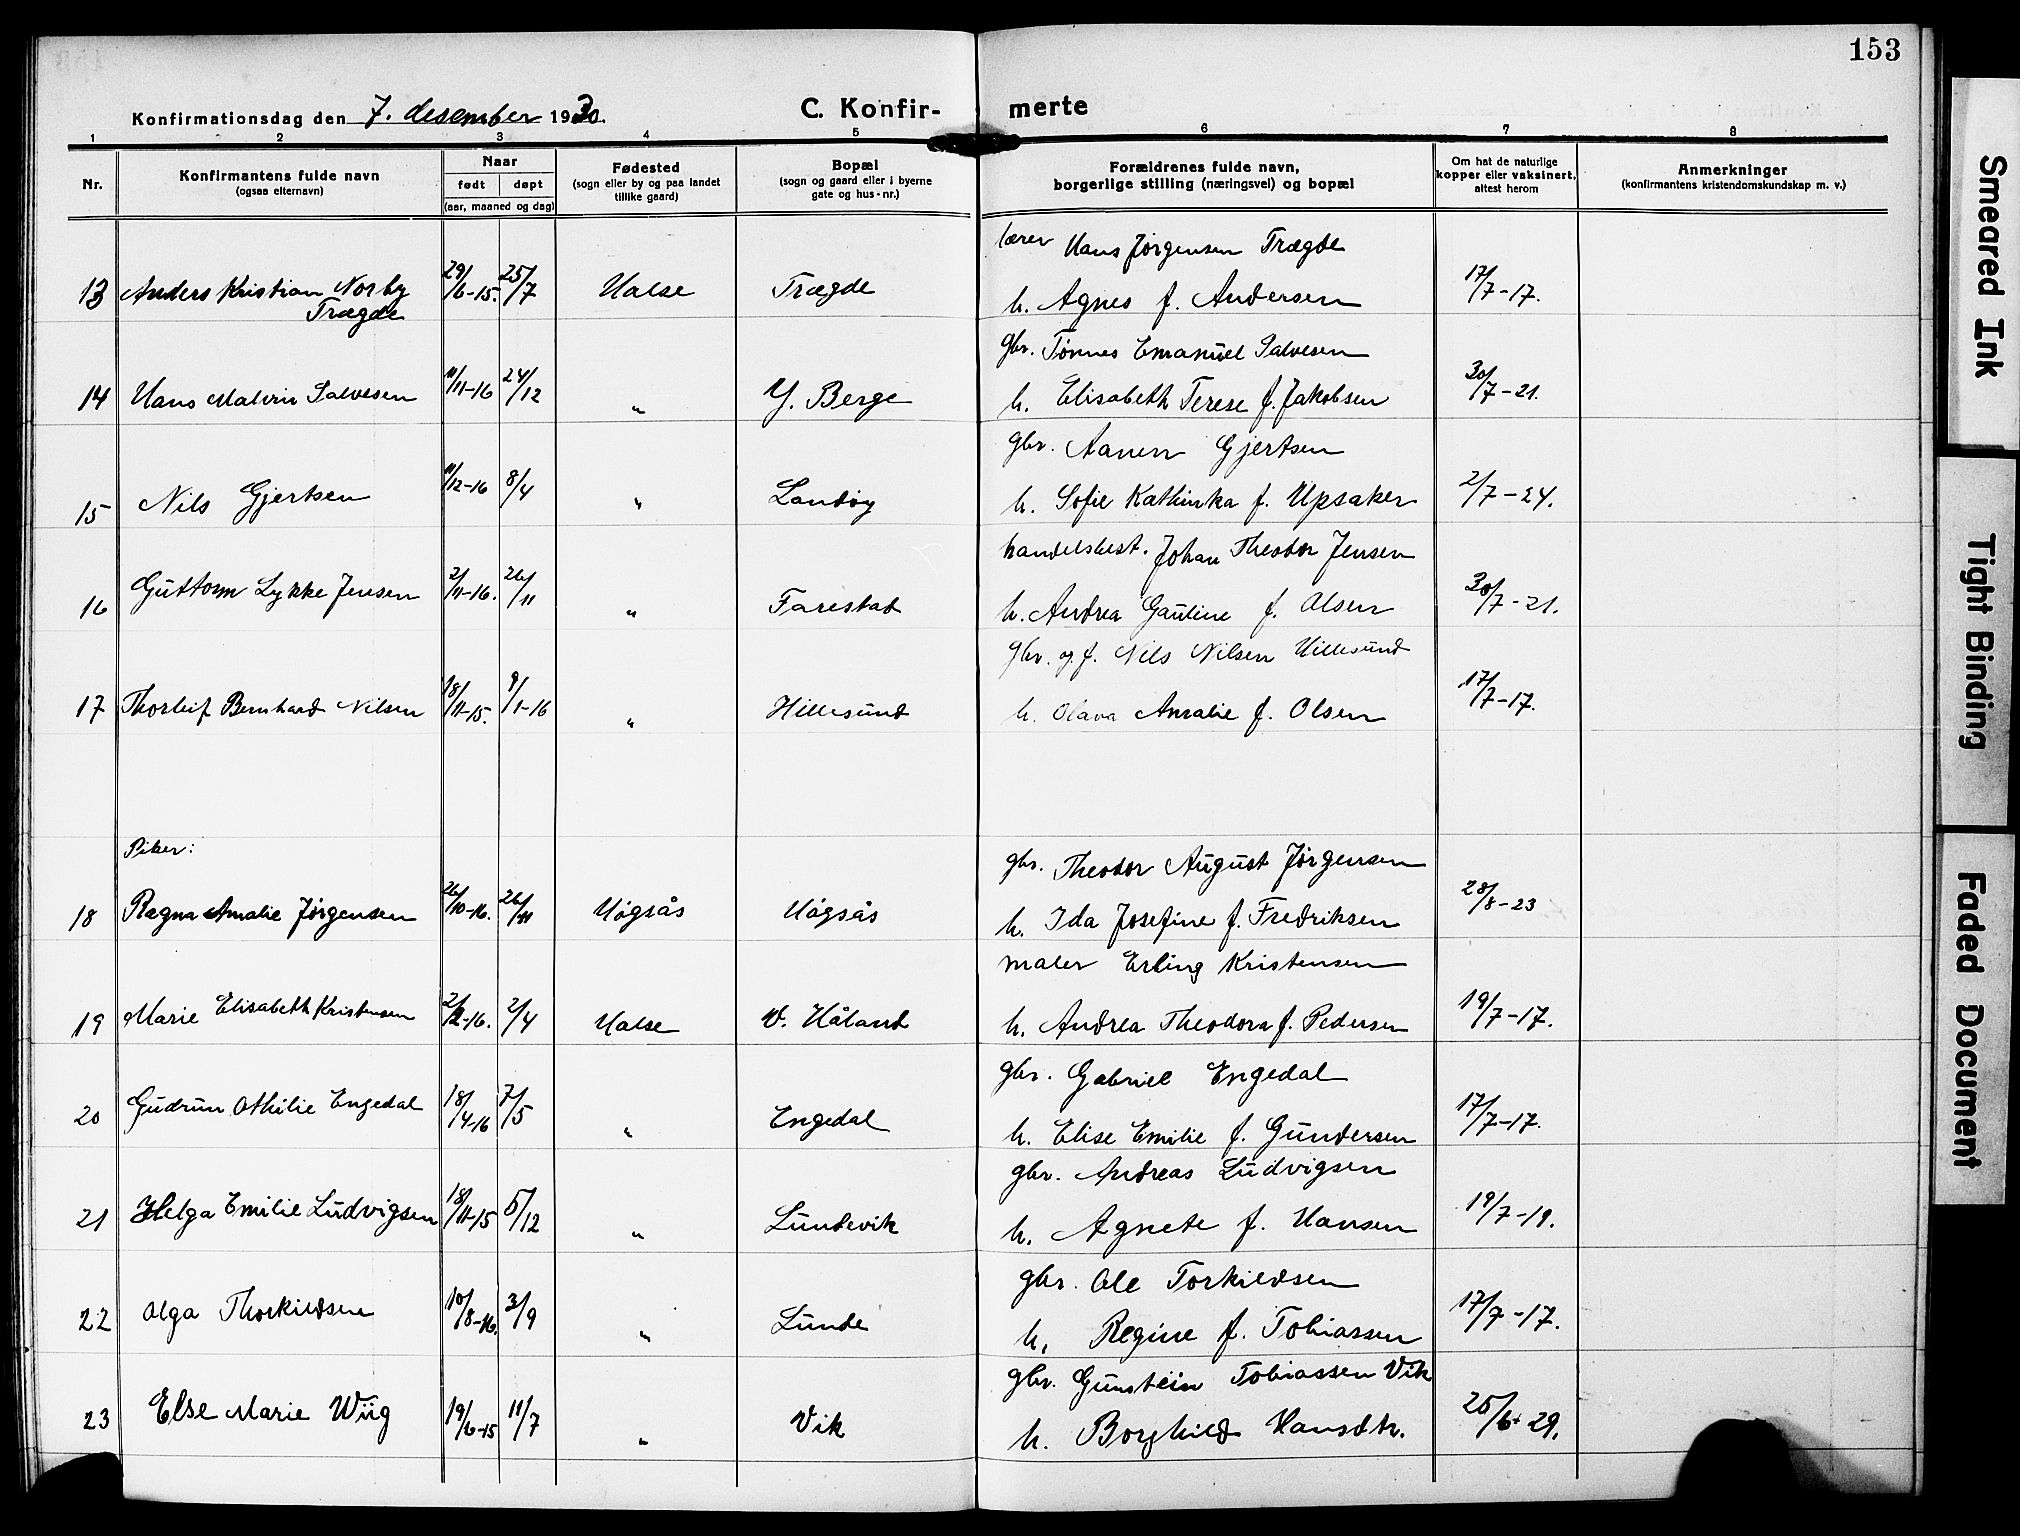 153
Konfirmationsdag den 7. desember 1930.
C. Konfir- merte
1 2 3 4 5 6 7 8
Nr.
Konfirmantens fulde navn
(ogsaa efternavn)
Naar
født døpt
(aar, maaned og dag)
Fødested
(sogn eller by og paa landet
tillike gaard)
Bopæl
(sogn og gaard eller i byerne
gate og hus-nr.)
Forældrenes fulde navn,
borgerlige stilling (næringsvei) og bopæl
Om hat de naturlige
kopper eller vaksinert,
attest herom
Anmerkninger
(konfirmantens kristendomskundskap m. v.)
lærer Hans Jørgensen Trægde
13 Anders Kristian Norby 29/6-15. 25/7 Halse Trægde h. Agnes f. Andersen 17/7-17.
Trægde
gbr. Tønnes Emanuel Salvesen
14 Hans Malvin Salvesen 11/11-16 24/12 " Y. Berge h. Elisabeth Terese f. Jakobsen 30/7-21.
gbr. Aanen Gjertsen
15 Nils Gjertsen 11/12-16 8/4 " Landøy h. Sofie Kathinka f. Upsaker 2/7-24.
handelsbest. Johan Theodor Jensen
16 Guttorm Lykke Jensen 2/11-16. 26/11 " Farestad h. Andrea Gauline f. Olsen 30/7-21.
gbr. og f. Nils Nilsen Hillesund
17 Thorleif Bernhard Nilsen 18/11-15. 9/1-16 " Hillesund h. Olava Amalie f. Olsen 17/7-17.
Piker:
gbr. Theodor August Jørgensen
18 Ragna Amalie Jørgensen 26/10-16. 26/11 Høgsås Høgsås h. Ida Josefine f. Fredriksen 28/8-23
maler Erling Kristensen
19 Marie Elisabeth Kristensen 2/2-16. 2/4 Halse V. Håland h. Andrea Theodora f. Pedersen 19/7-17.
gbr. Gabriel Engedal
20 Gudrun Othilie Engedal 18/4-16 7/5 " Engedal h. Elise Emilie f. Gundersen 17/7-17.
gbr. Andreas Ludvigsen
21 Helga Emilie Ludvigsen 18/11-15 5/12 " Lundevik h. Agnete f. Hansen 19/7-19.
gbr. Ole Torkildsen
22 Olga Thorkildsen 10/8-16. 3/9 " Lunde h. Regine f. Tobiassen 17/7-17.
gbr. Gunstein Tobiassen Vik
23 Else Marie Wiig 19/6-15 11/7 " Vik h. Borghild Hansdtr. 25/6-29.
Smeared Ink
Tight Binding
Faded Document